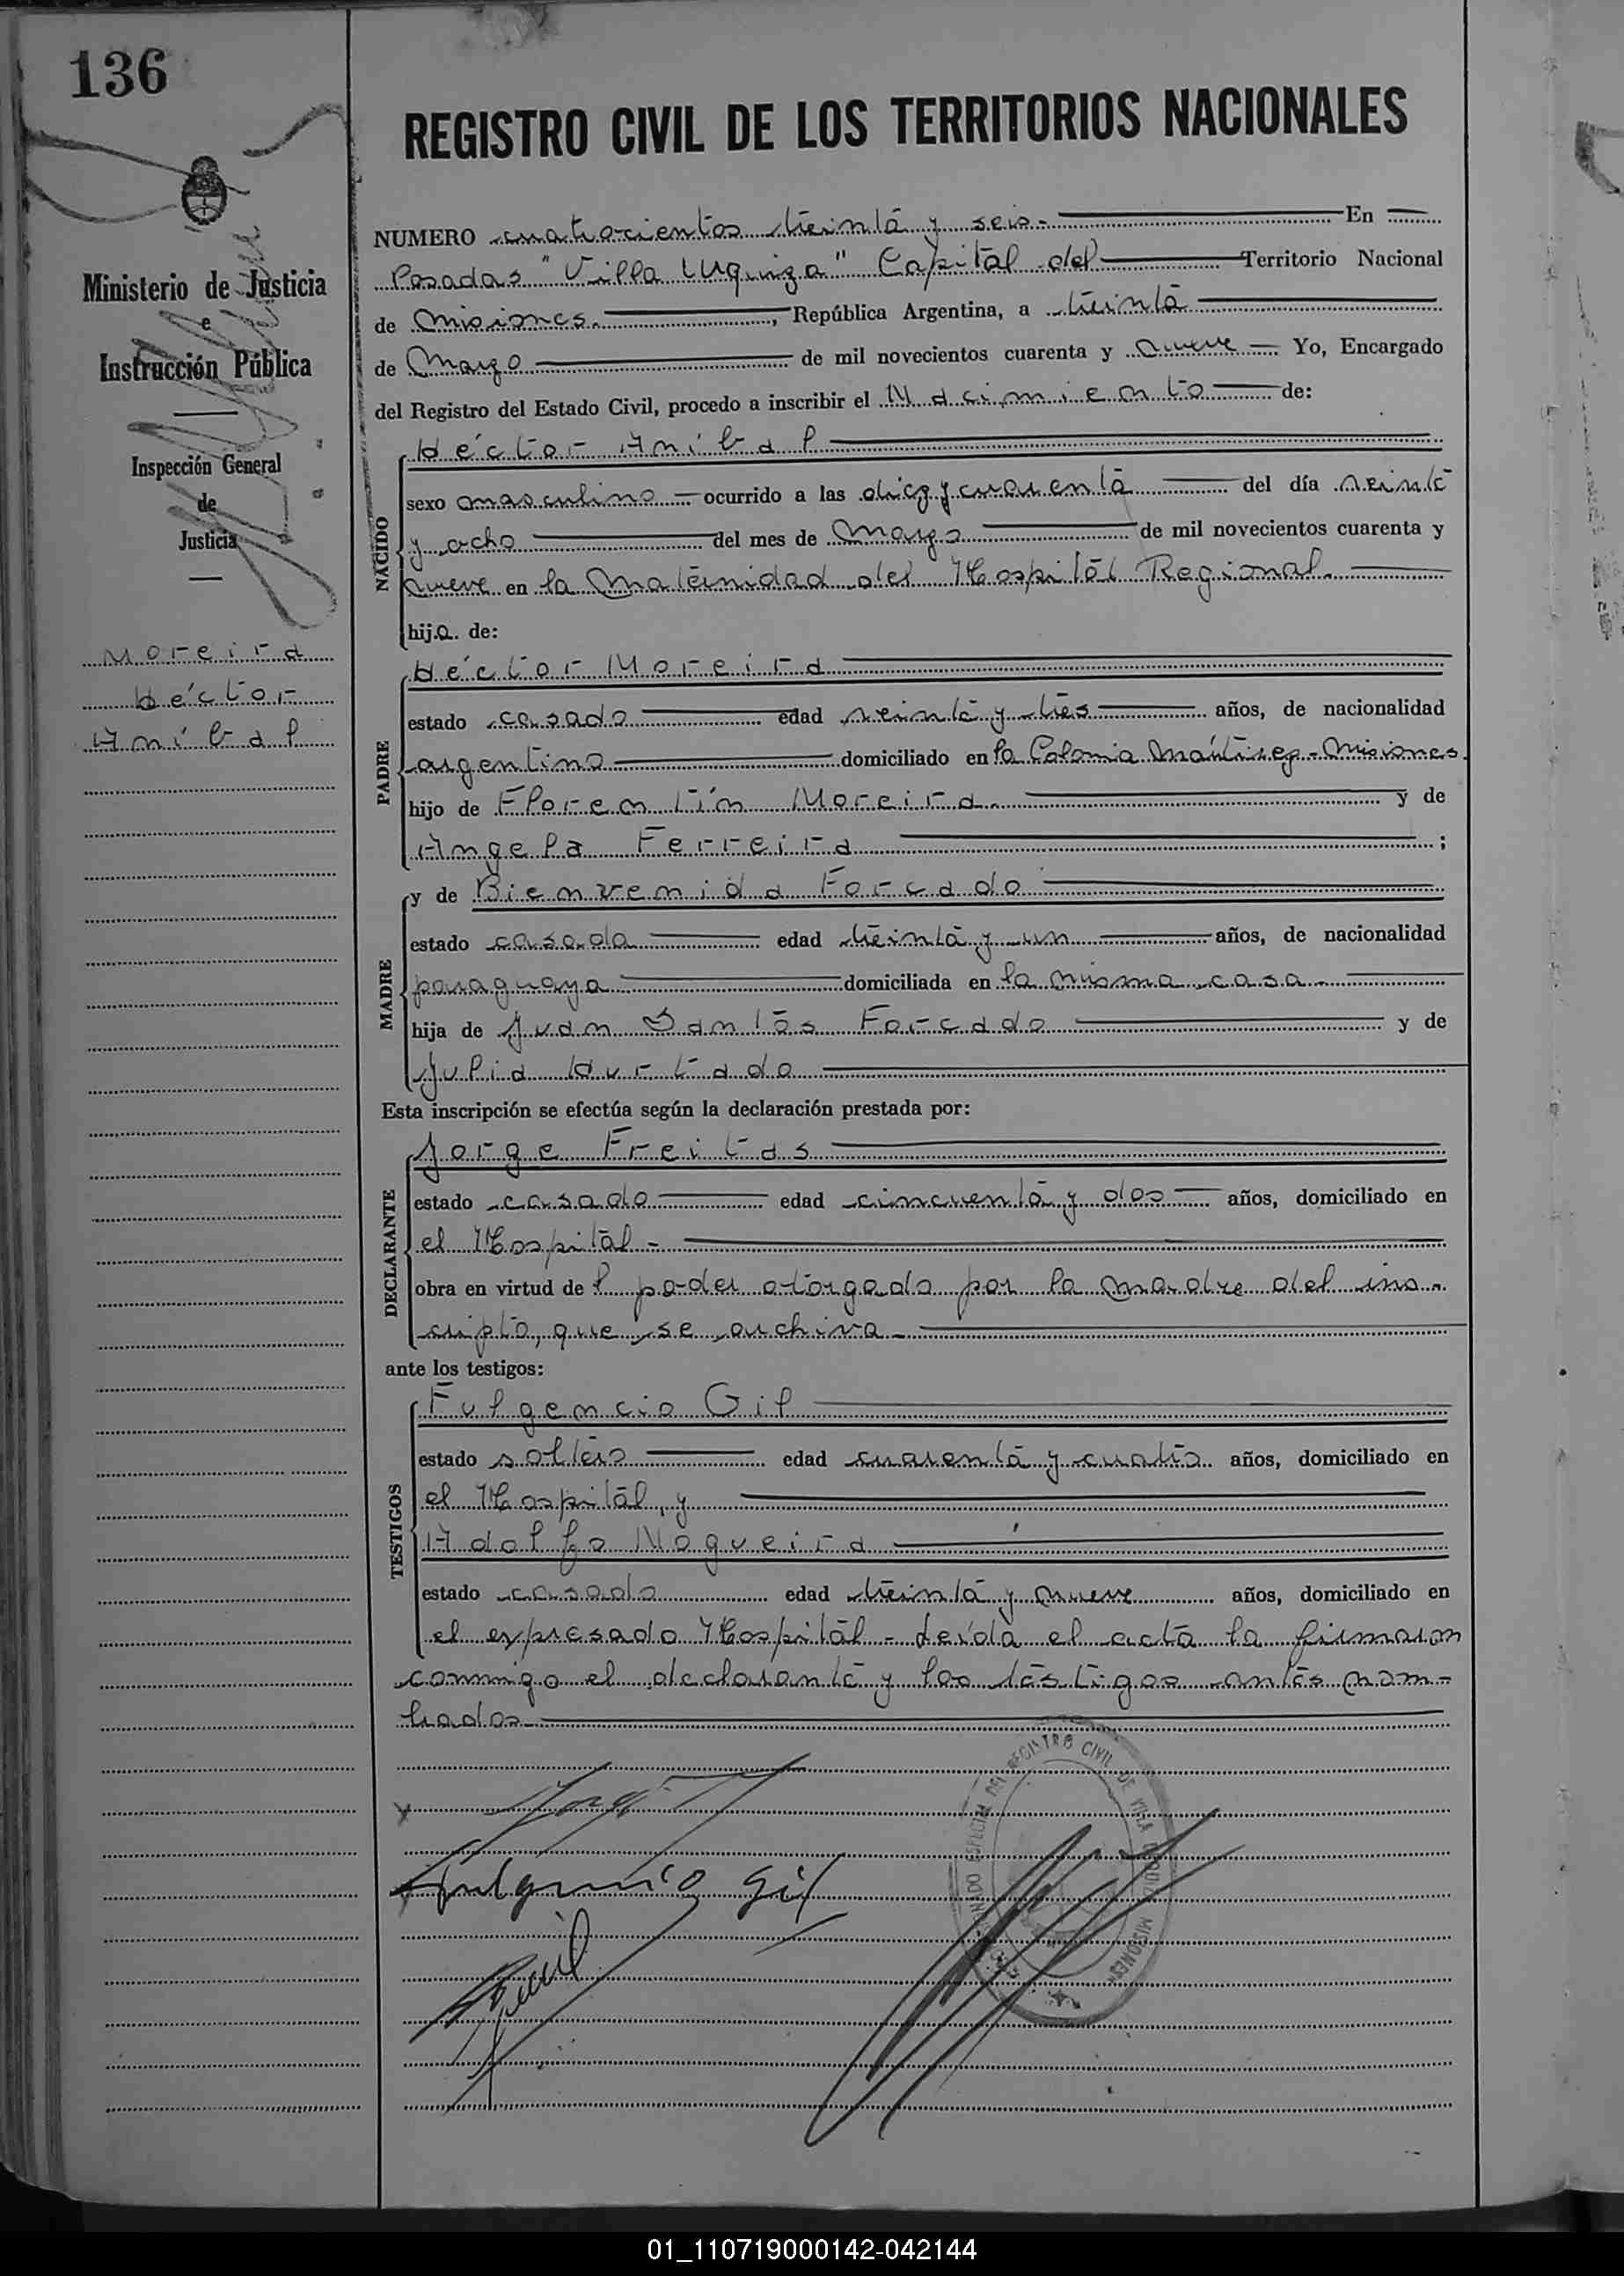 136
REGISTRO CIVIL DE LOS TERRITORIOS NACIONALES
Ministerio de Justicia
e
Instrucción Pública
Inspección General
de
Justicia
Moreira
Héctor
Aníbal
NUMERO cuatrocientos treinta y seis.- En
Posadas "Villa Urquiza" Capital del Territorio Nacional
de Misiones. , República Argentina, a treinta
de Marzo de mil novecientos cuarenta y nueve Yo, Encargado
del Registro del Estado Civil, procedo a inscribir el Nacimiento de:
NACIDO
Héctor Aníbal
sexo masculino ocurrido a las diez y cuarenta del día veinte
y ocho del mes de Marzo de mil novecientos cuarenta y
nueve en la Maternidad del Hospital Regional.
hijo. de:
PADRE
Héctor Moreira
estado casado edad veinte y tres años, de nacionalidad
argentino domiciliado en la Colonia Mártirez - Misiones.
hijo de Florentín Moreira. y de
Angela Ferreira ;
MADRE
y de Bienvenida Forcado
estado casada edad treinta y un años, de nacionalidad
paraguaya domiciliada en la misma casa.
hija de Juan Santos Forcado y de
Julia Hurtado
Esta inscripción se efectúa según la declaración prestada por:
DECLARANTE
Jorge Freitas
estado casado edad cincuenta y dos años, domiciliado en
el Hospital -
obra en virtud del poder otorgado por la madre del ins-
cripto, que se archiva -
ante los testigos:
TESTIGOS
Fulgencio Gil
estado soltero edad cuarenta y cuatro años, domiciliado en
el Hospital, y
Adolfo Nogueira
estado casado edad treinta y nueve años, domiciliado en
el expresado Hospital - Leída el acta la firmaron
conmigo el declarante y los testigos antes nom-
brados
Fulgencio Gil
ESPECIAL DEL REGISTRO CIVIL DE VILLA URQUIZA MISIONES
01_110719000142-042144